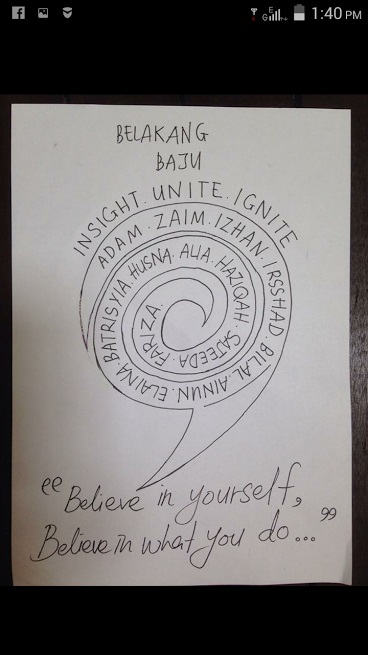 1:40 PM
BELAKANG
BAJU
INSIGHT. UNITE. IGNITE
ADAM. ZAIM. IZHAN. IRSSHAD. BILAL. AINUN. ELAINA. BATRISYIA. HUSNA. ALIA. HAZIQAH. SAJEEDA. FARIZA.
“Believe in yourself,
Believe in what you do...”